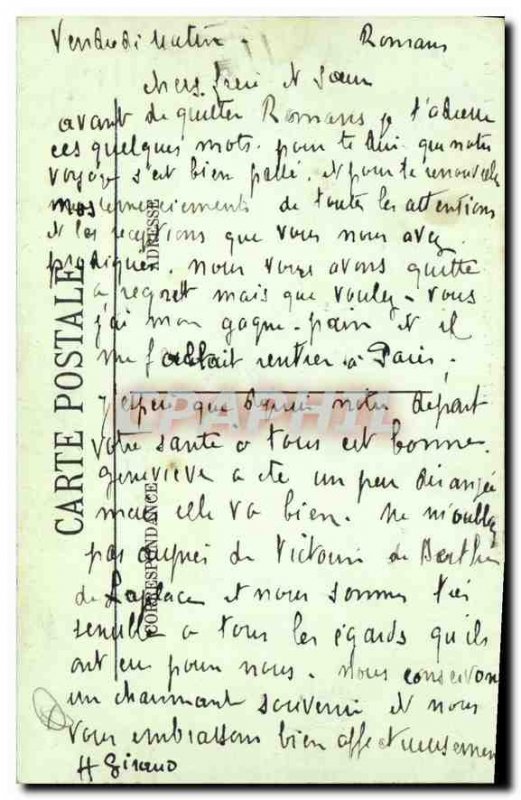 Vendredi Matin - Romans
chers frère et Sœur
avant de quitter Romans je t'adresse
ces quelques mots. pour te dire que notre
voyage s'est bien passé. et pour te renouveler
nos remerciements de toutes les attentions
et les réceptions que vous nous avez
prodiguées. nous vous avons quitté
à regret mais que voulez-vous
j'ai mon gagne-pain et il
me fallait rentrer à Paris.
j'espère que depuis notre départ
votre santé à tous est bonne.
Geneviève a été un peu dérangée
mais elle va bien. Ne m'oubliez
pas auprès de Victoire de Berthe
de Laplace et nous sommes très
sensible à tous les égards qu'ils
ont eu pour nous. nous conservons
un charmant souvenir et nous
vous embrassons bien affectueusement
H Giraud
CARTE POSTALE
CORRESPONDANCE
ADRESSE